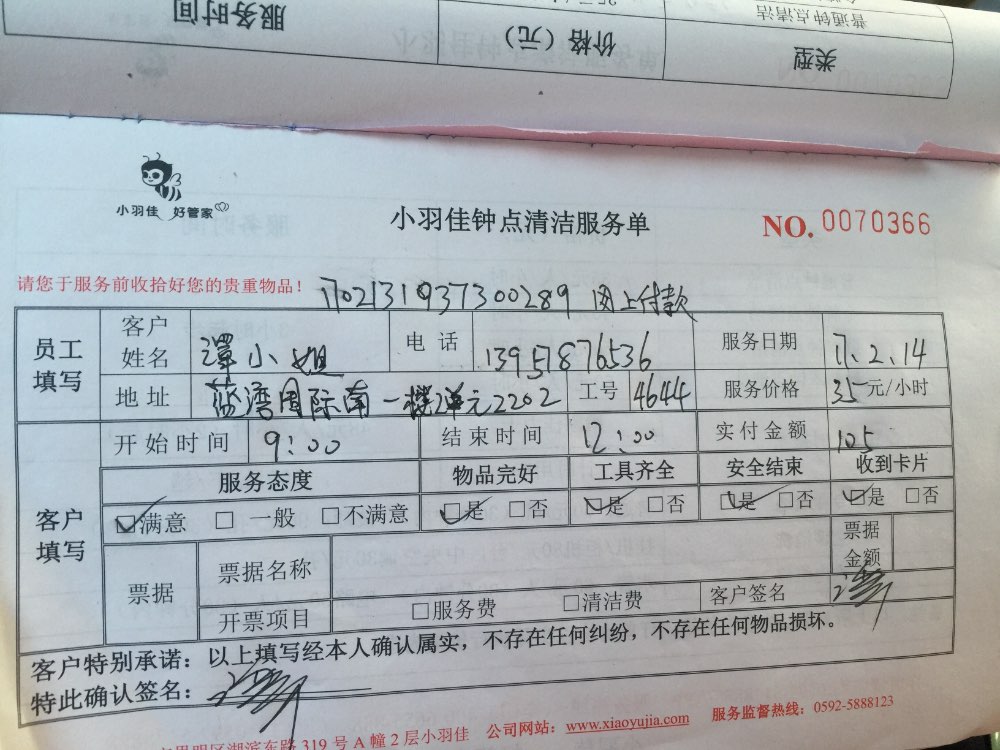 服务时间 价格（元） 类型
普通钟点清洁
小羽佳 好管家
小羽佳钟点清洁服务单
NO. 0070366
请您于服务前收拾好您的贵重物品！
1702131937300289 网上付款
员工填写
客户姓名 谭小姐 电话 13951876536 服务日期 17.2.14
地址 蓝湾国际南一楼2单元2202 工号 4644 服务价格 35元/小时
客户填写
开始时间 9:00 结束时间 12:00 实付金额 105
服务态度 物品完好 工具齐全 安全结束 收到卡片
☑满意 □一般 □不满意 ☑是 □否 ☑是 □否 ☑是 □否 ☑是 □否
票据 票据名称 票据金额
开票项目 □服务费 □清洁费 客户签名
客户特别承诺：以上填写经本人确认属实，不存在任何纠纷，不存在任何物品损坏。
特此确认签名：
湖滨东路 319 号 A 幢 2 层小羽佳 公司网站：www.xiaoyujia.com 服务监督热线：0592-5888123